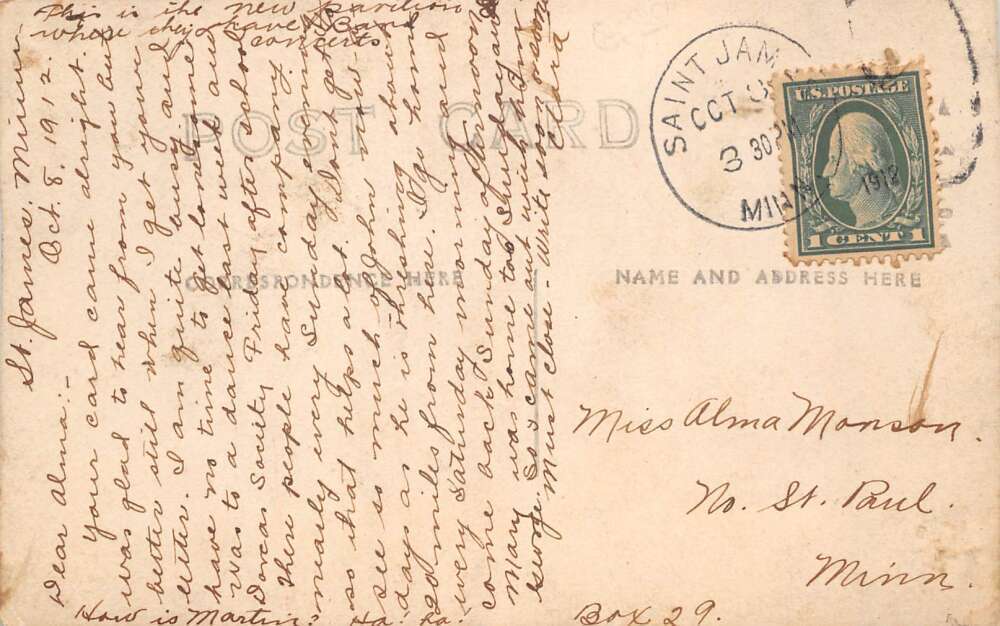 This is the new pavilion
where they have Band
concerts
POST CARD
CORRESPONDENCE HERE
NAME AND ADDRESS HERE
SAINT JAM
OCT
3 30 PM
1912
MINN
U.S. POSTAGE
1 CENT 1
St. James, Minn.
Oct. 8. 1912.
Dear Alma:-
Your card came alright
was glad to hear from you but
better still when I get your
letter. I am quite busy and
have no time to get lonesome
Was to a dance last week and
Dorcas Society Friday after school
These people have company
nearly every Sunday evening
so that helps a lot. I don't get to
see so much of John now-
days as he is threshing about
20 miles from here. I go home
every Saturday morning and
come back Sunday afternoon
Mary was home too Sunday and
George so I came out with them
Must close - Write soon or send
a card
How is Martin? Ha! ha!
Miss Alma Monson.
No. St. Paul.
Minn.
Box 29.